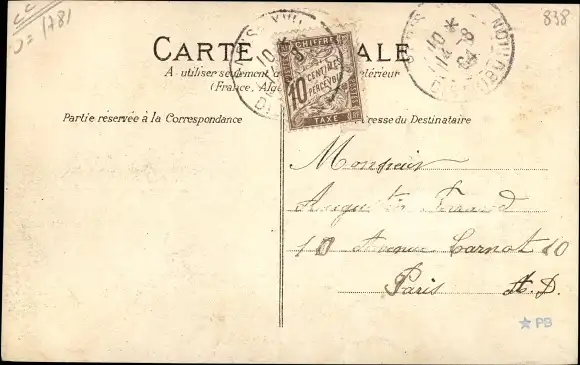 CC
J= 1781
838
CARTE ALE
A utiliser seulement d térieur
(France, Alg
Partie reservée à la Correspondance
resse du Destinataire
CHIFFRE
10 CENTIMES
A PERCEVOIR
TAXE
Monsieur
10 Avenue Carnot 10
Paris
PB